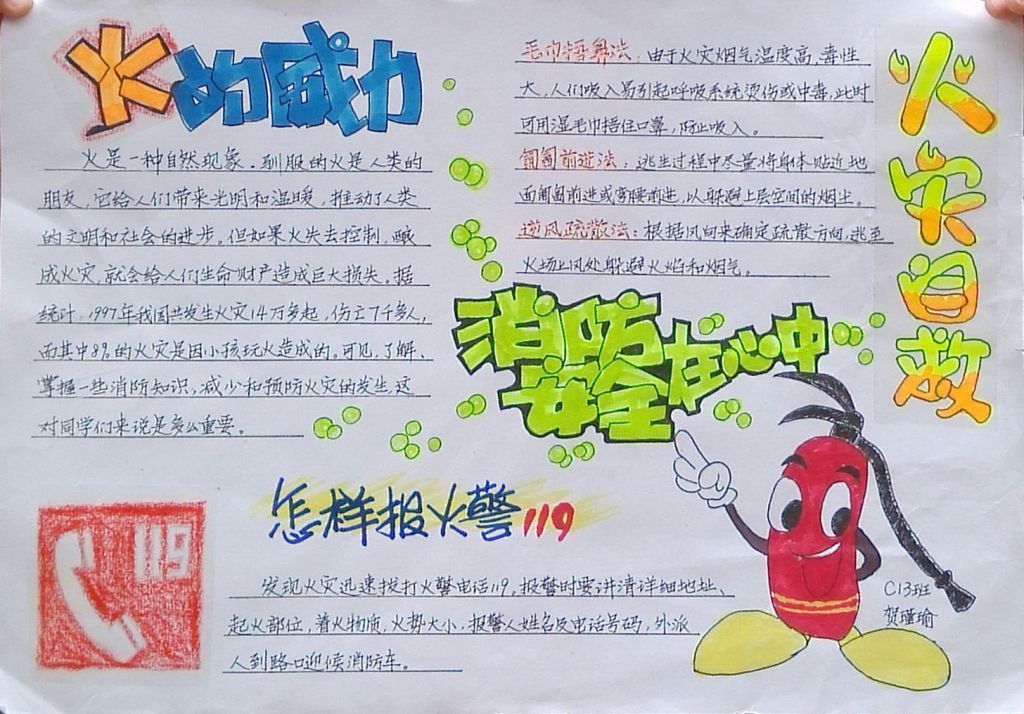 火的威力
火是一种自然现象.驯服的火是人类的
朋友,它给人们带来光明和温暖,推动了人类
的文明和社会的进步。但如果火失去控制,酿
成火灾,就会给人们生命财产造成巨大损失。据
统计,1997年我国共发生火灾14万多起,伤亡7千多人,
而其中8%的火灾是因小孩玩火造成的。可见,了解、
掌握一些消防知识,减少和预防火灾的发生,这
对同学们来说是多么重要。
毛巾捂鼻法:由于火灾烟气温度高,毒性
大,人们吸入易引起呼吸系统烫伤或中毒,此时
可用湿毛巾捂住口罩,防止吸入。
匍匐前进法:逃生过程中尽量将身体贴近地
面匍匐前进或弯腰前进,以躲避上层空间的烟尘。
逆风疏散法:根据风向来确定疏散方向,逃至
火场上风处躲避火焰和烟气。
火灾自救
消防安全在心中
怎样报火警119
119
发现火灾迅速拨打火警电话119。报警时要讲清详细地址、
起火部位,着火物质,火势大小,报警人姓名及电话号码,外派
人到路口迎候消防车。
C13班
贺瑾瑜